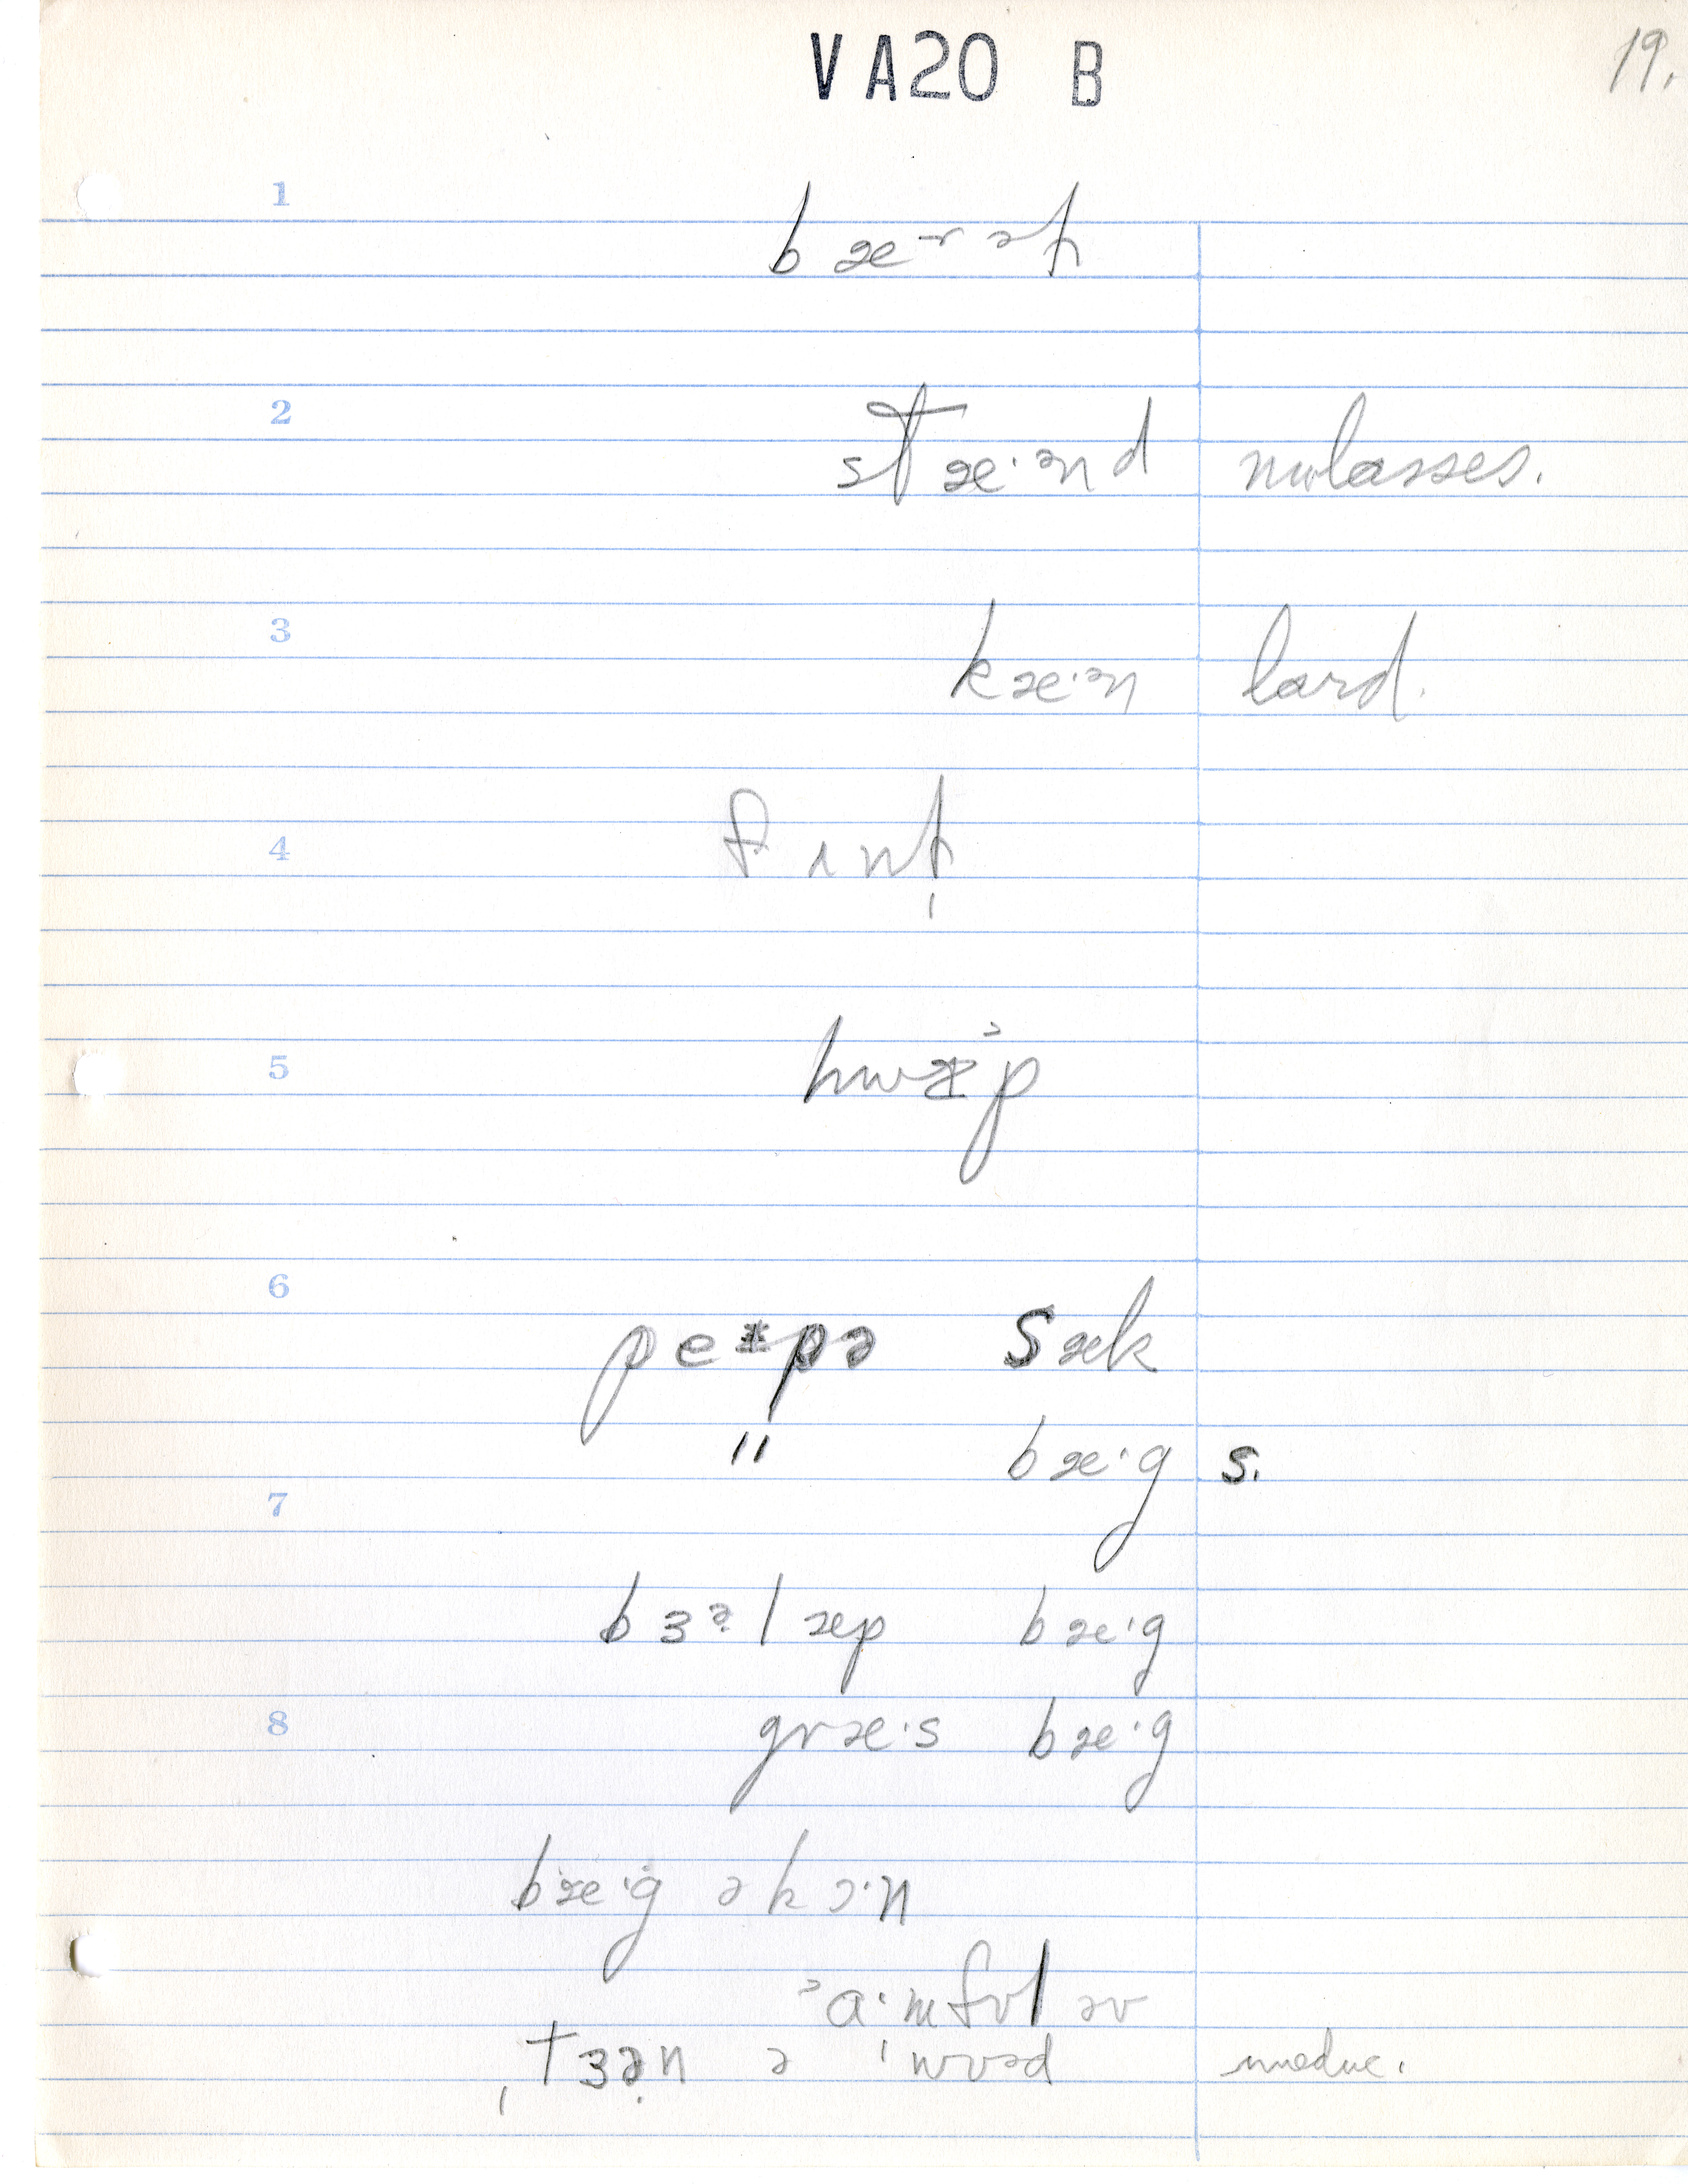 VA20 B
19.
1
bæ-rəƚ
2
stæ·ənd molasses.
3
kæ·ən lard.
4
5
hwɪᵊp
6
pe pə sæk
" bæ·g s.
7
bɜᵊlæp bæ·g
8
græ·s bæ·g
bæ·g ə kɔ·n
ɑ·mfʊl əv
tɜən ə wʊəd